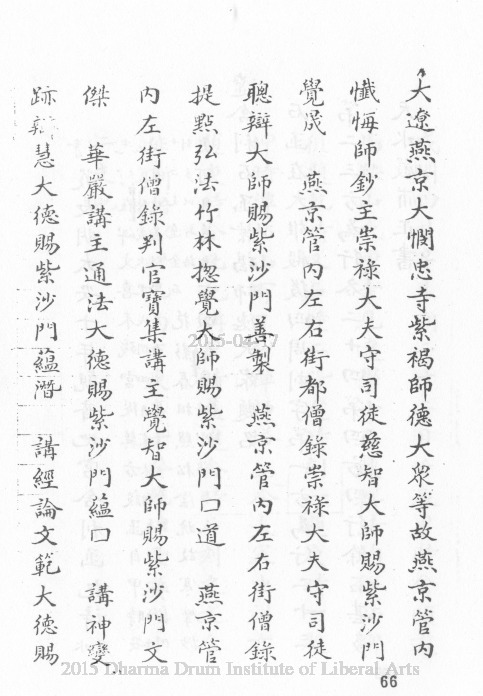 大遼燕京大憫忠寺紫褐師德大衆等故燕京管内
懺悔師鈔主崇祿大夫守司徒慈智大師賜紫沙門
覺晟　燕京管内左右街都僧錄崇祿大夫守司徒
聰辯大師賜紫沙門善製　燕京管内左右街僧錄
提點弘法竹林揔覺大師賜紫沙門口道　燕京管
内左街僧錄判官寶集講主覺智大師賜紫沙門文
傑　華嚴講主通法大德賜紫沙門蘊口　講神變
跡辯慧大德賜紫沙門蘊潛　講經論文範大德賜
2015-04-17
2015 Dharma Drum Institute of Liberal Arts
66